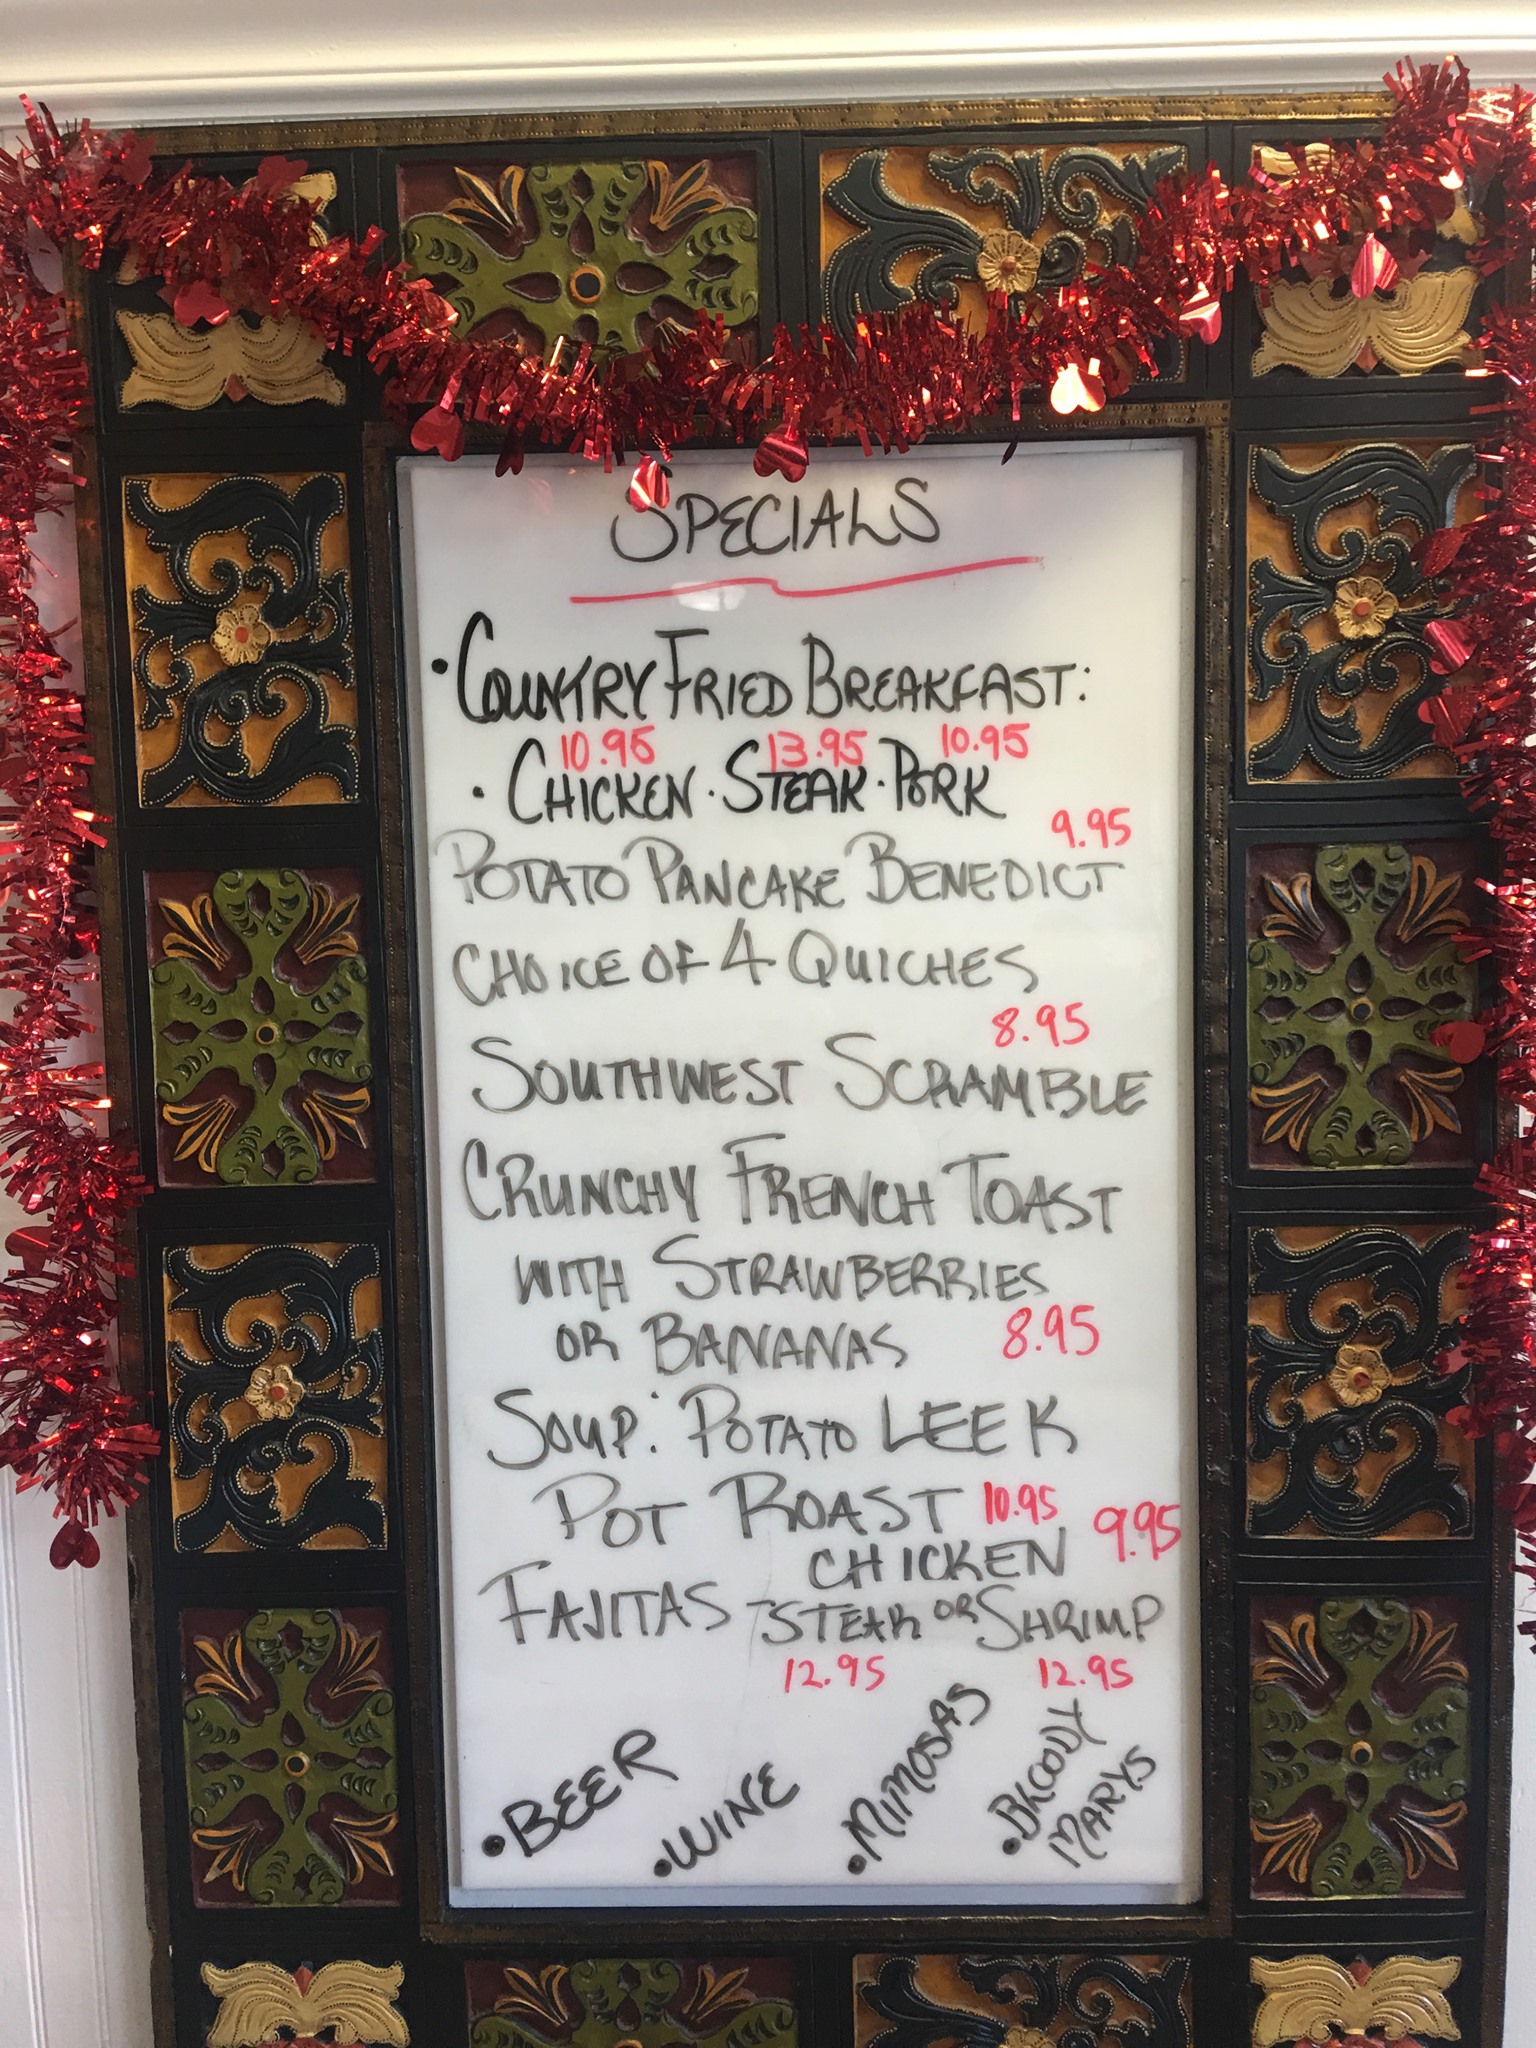 SPECIALS
• COUNTRY FRIED BREAKFAST:
10.95 13.95 10.95
• CHICKEN • STEAK • PORK
9.95
POTATO PANCAKE BENEDICT
CHOICE OF 4 QUICHES
8.95
SOUTHWEST SCRAMBLE
CRUNCHY FRENCH TOAST
WITH STRAWBERRIES
OR BANANAS 8.95
SOUP: POTATO LEEK
POT ROAST 10.95
CHICKEN 9.95
FAJITAS - STEAK OR SHRIMP
12.95 12.95
• BEER
• WINE
• MIMOSAS
• BLOODY
MARYS